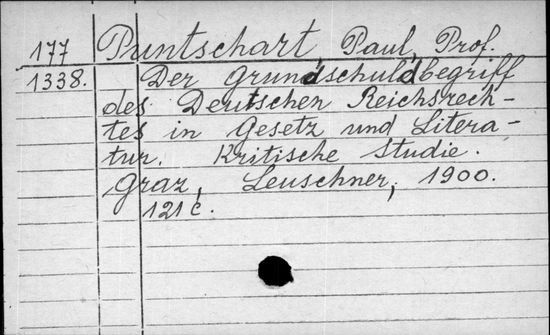 177 Puntschart Paul, Prof.
1338. Der Grundschuldbegriff
des Deutschen Reichsrech-
tes in Gesetz und Litera-
tur. Kritische Studie.
Graz, Leuschner, 1900.
121 c.